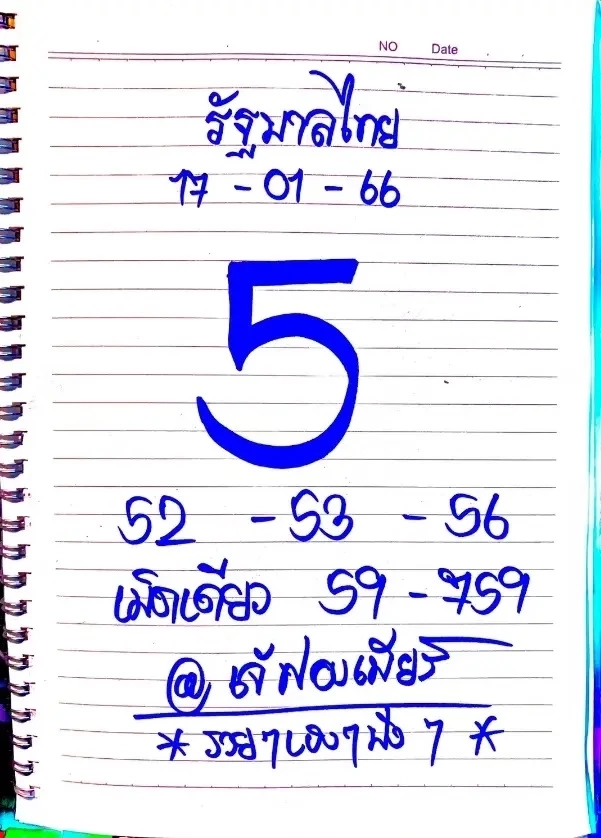 NO Date
รัฐบาลไทย
17 - 01 - 66
5
52 - 53 - 56
เม็ดเดียว 59 - 759
@ เจ๊ฝนเมียร์
* รวยๆเฮงๆ